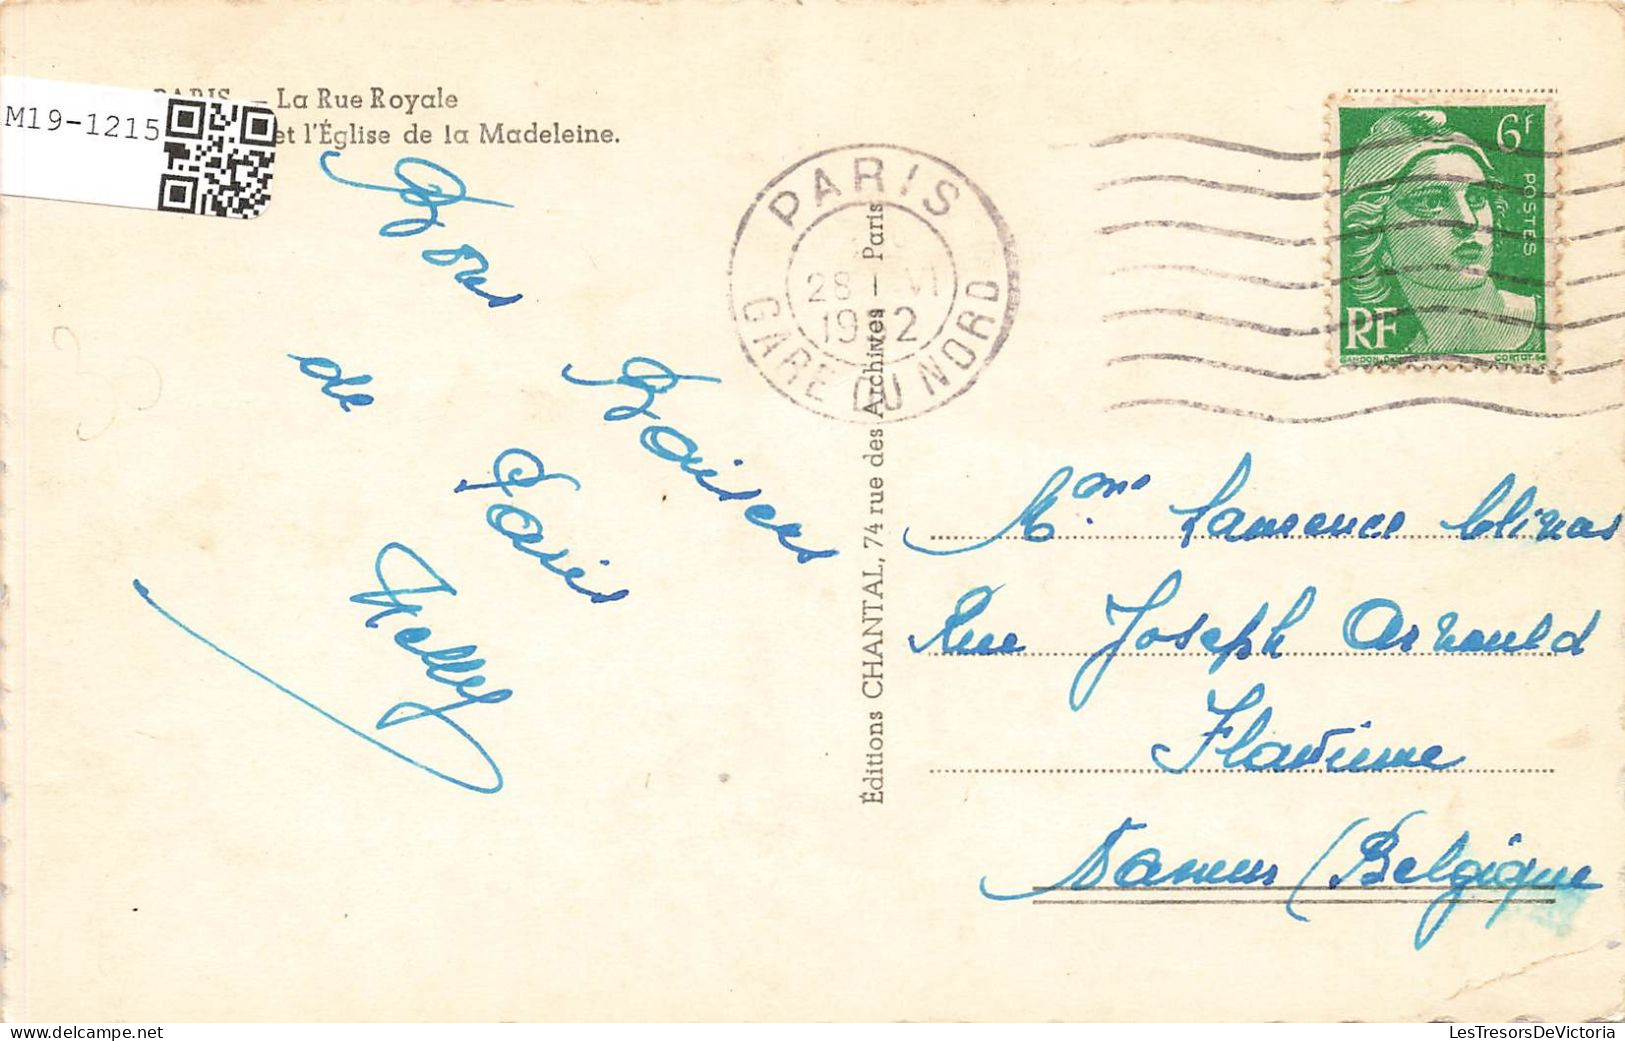 PARIS. — La Rue Royale
et l'Église de la Madeleine.
M19-1215
Bons
Baisers
de
Paris
Nelly
Éditions CHANTAL, 74 rue des Archives — Paris
PARIS
28 - VI
GARE DU NORD
6f
POSTES
RF
GANDON
CORTOT
Mme Laurence
Rue Joseph Arnould
Flavinne
Namur (Belgique
LesTresorsDeVictoria
www.delcampe.net